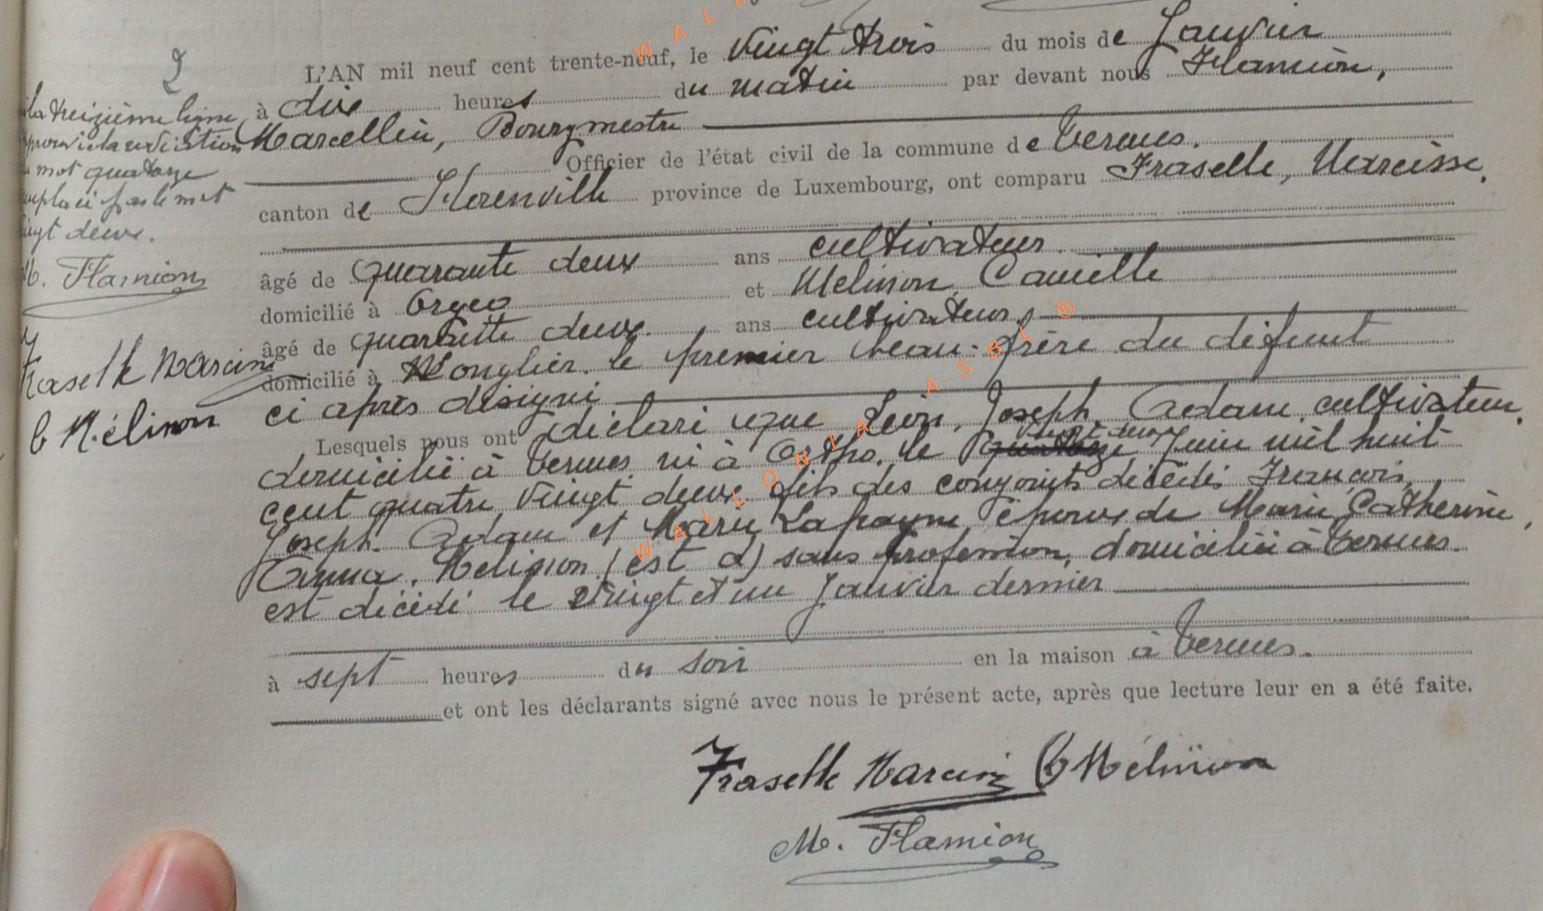 2
la treizième ligne
approuvé la radiation
du mot quatorze
remplacé par le mot
vingt deux.
M. Flamion
Fraselle Narcisse
C Mélinon
L'AN mil neuf cent trente-neuf, le vingt trois du mois de Janvier
à dix heures du matin par devant nous Flamion,
Marcellin, Bourgmestre
Officier de l'état civil de la commune de Termes.
canton de Florenville province de Luxembourg, ont comparu Fraselle, Narcisse,
âgé de quarante deux ans cultivateur
domicilié à Orgeo et Melinon, Camille
âgé de quarante deux ans cultivateur,
domicilié à Longlier. le premier beau-frère du défunt
ci après désigné
Lesquels nous ont déclaré que Léon, Joseph, Adam cultivateur,
vingt deux
domicilié à Termes né à Ortho, le quatorze Juin mil huit
cent quatre vingt deux fils des conjoints décédés François,
Joseph Adam et Marie Lapayne, époux de Marie, Catherine,
Anna, Melinon (est d) sans profession, domiciliée à Termes
est décédé le vingt et un Janvier dernier
à sept heures du soir en la maison à Termes.
et ont les déclarants signé avec nous le présent acte, après que lecture leur en a été faite.
Fraselle Narcisse C Mélinon
M. Flamion
WALLONIA ASBL ®
WAL